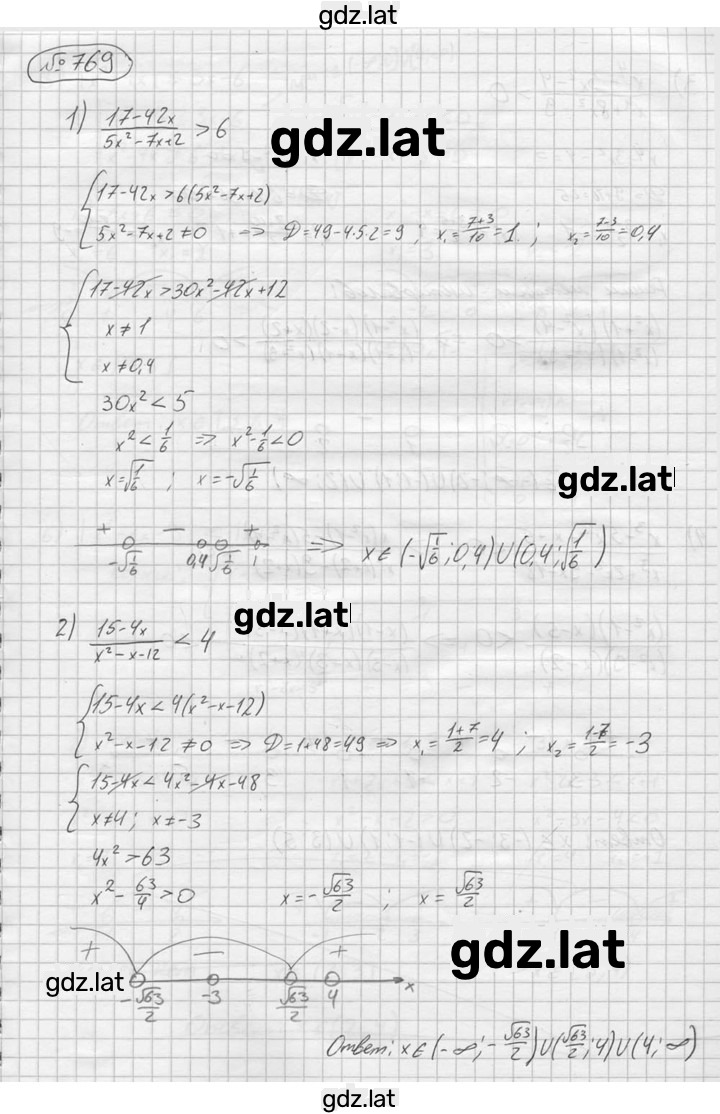 gdz.lat
№ 769
1) (17-42x)/(5x²-7x+2) > 6
gdz.lat
{ 17-42x > 6(5x²-7x+2)
5x²-7x+2 ≠ 0 => D = 49-4·5·2 = 9 ; x₁ = (7+3)/10 = 1 ; x₂ = (7-3)/10 = 0,4
{ 17-42x > 30x²-42x+12
x ≠ 1
x ≠ 0,4
30x² < 5
x² < 1/6 => x²-1/6 < 0
x = √(1/6) ; x = -√(1/6)
gdz.lat
+ − +
-√(1/6) 0,4 √(1/6) 1 => x ∈ (-√(1/6); 0,4) ∪ (0,4; √(1/6))
gdz.lat
2) (15-4x)/(x²-x-12) < 4
{ 15-4x < 4(x²-x-12)
x²-x-12 ≠ 0 => D = 1+48 = 49 => x₁ = (1+7)/2 = 4 ; x₂ = (1-7)/2 = -3
{ 15-4x < 4x²-4x-48
x ≠ 4 ; x ≠ -3
4x² > 63
x² - 63/4 > 0 x = -√63/2 ; x = √63/2
+ − +
gdz.lat
gdz.lat
-√63/2 -3 √63/2 4 x
Ответ: x ∈ (-∞; -√63/2) ∪ (√63/2; 4) ∪ (4; ∞)
gdz.lat